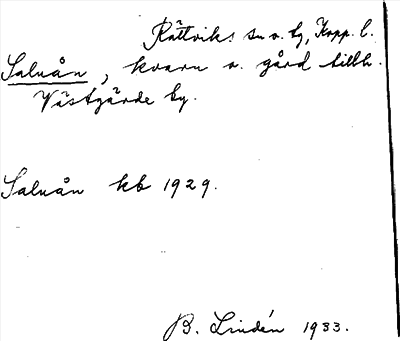 Rättviks sn o. tg, Kopp. l.
Saluån, kvarn o. gård tillh.
Västgärde by.
Saluån kb 1929.
B. Lindén 1933.